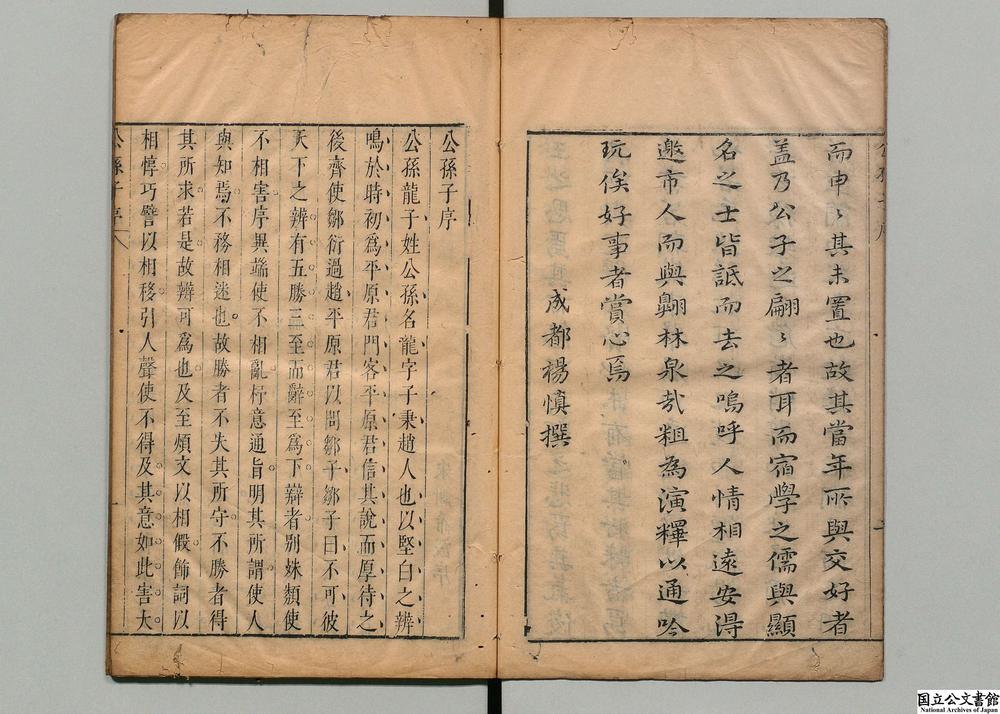 而申〻其未置也故其當年所與交好者
盖乃公子之翩〻者耳而宿學之儒與顯
名之士皆詆而去之嗚呼人情相遠安得
邀市人而與翺林泉㢤粗為演釋以通吟
玩俟好事者賞心焉
成都楊慎撰
公孫子序
公孫龍子姓公孫名龍字子秉趙人也以堅白之辨
鳴於時初爲平原君門客平原君信其說而厚待之
後齊使鄒衍過趙平原君以問鄒子鄒子曰不可彼
天下之辨有五勝三至而辭至爲下辯者别姝類使
不相害序異端使不相亂杼意通旨明其所謂使人
與知焉不務相迷也故勝者不失其所守不勝者得
其所求若是故辨可爲也及至煩文以相假飾詞以
相惇巧譬以相移引人聲使不得及其意如此害大
公孫子序
一
国立公文書館
National Archives of Japan